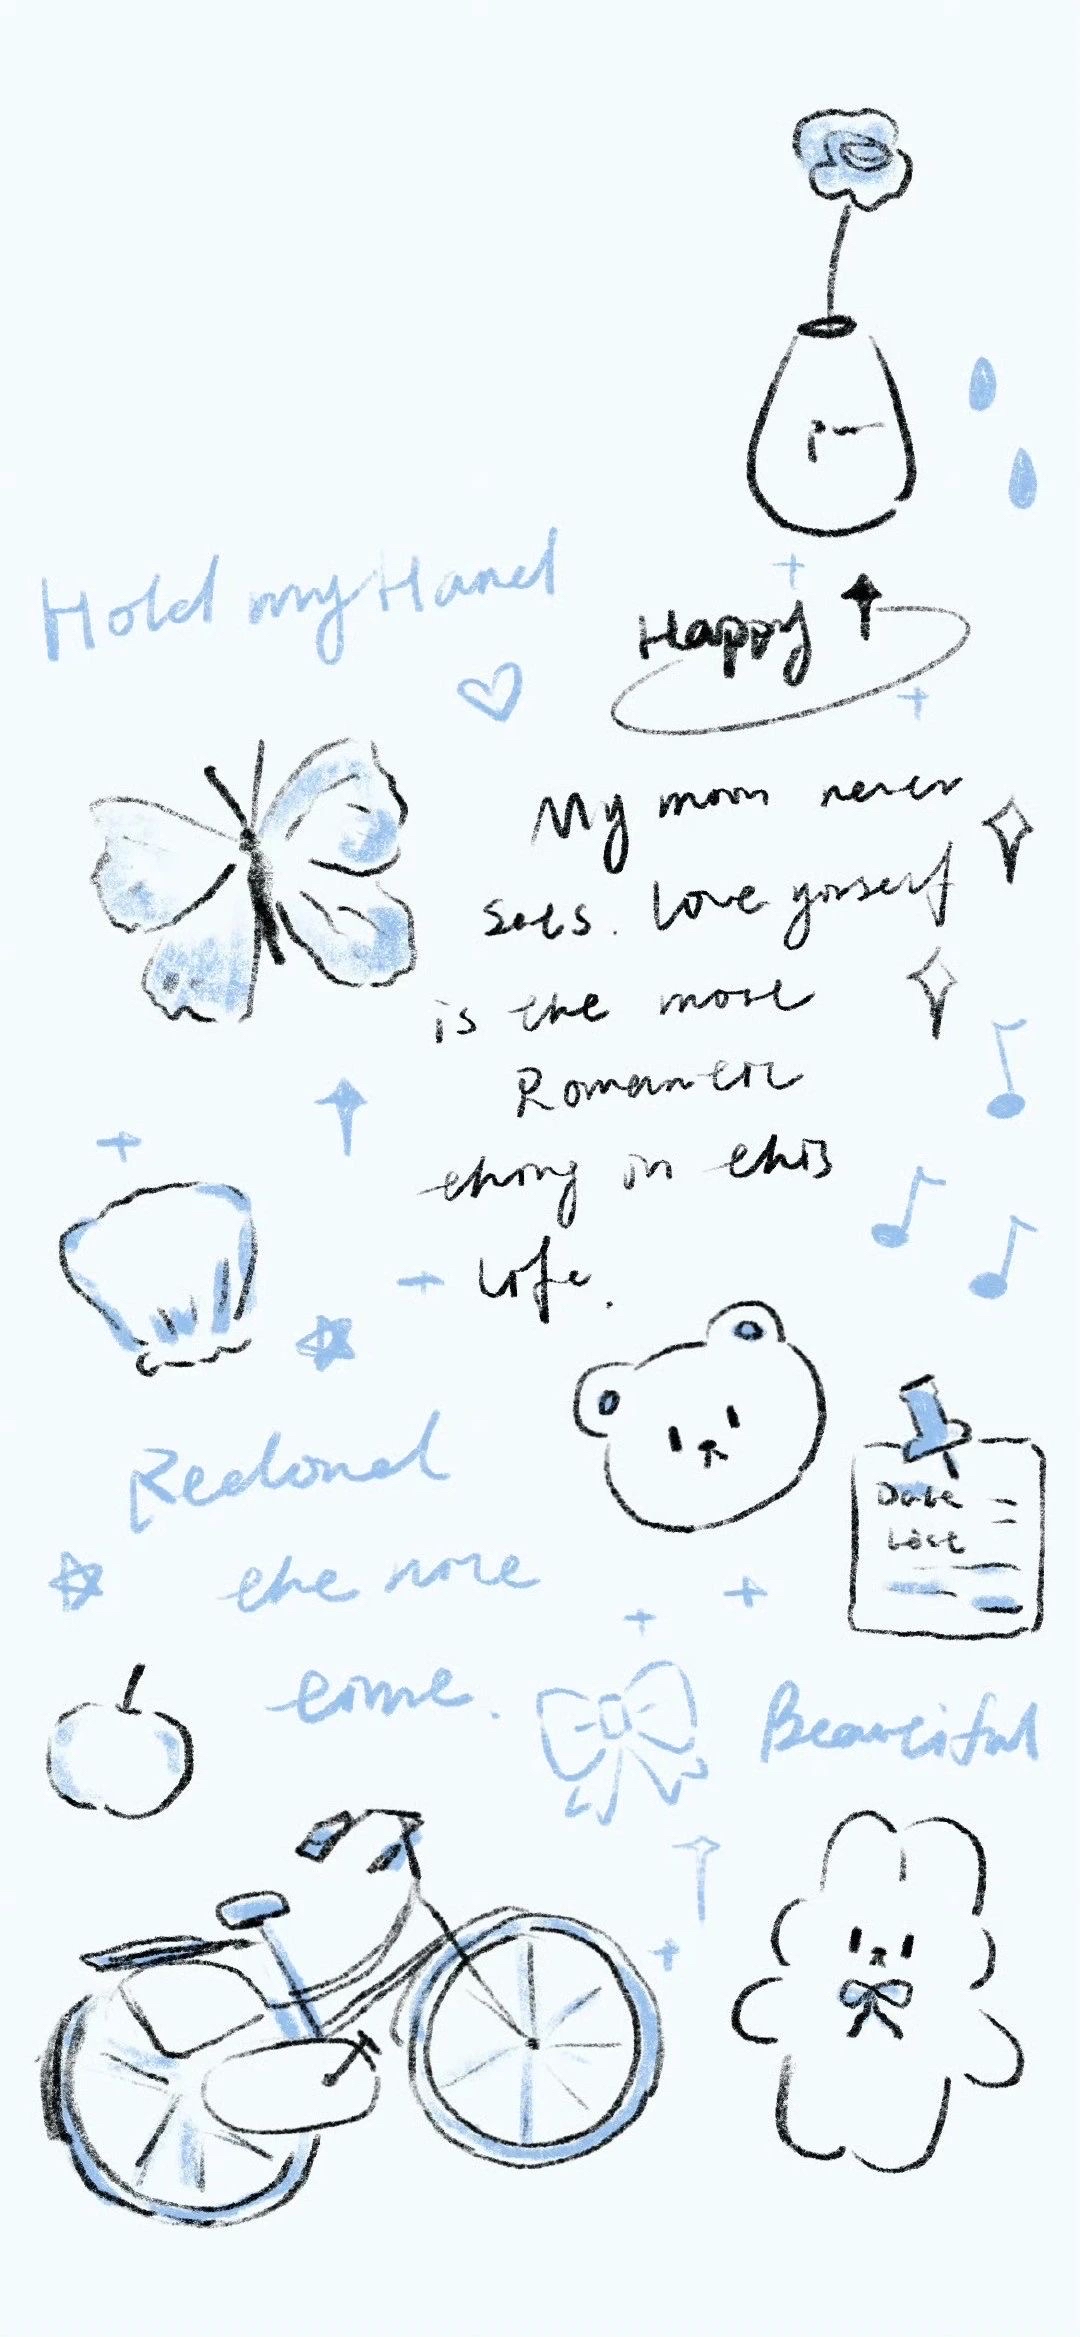 Hold my Hand
Happy
My moon never
sets. Love yoserf
is the most
Romantic
thing in this
life.
Date
List
the note
time.
Beautiful